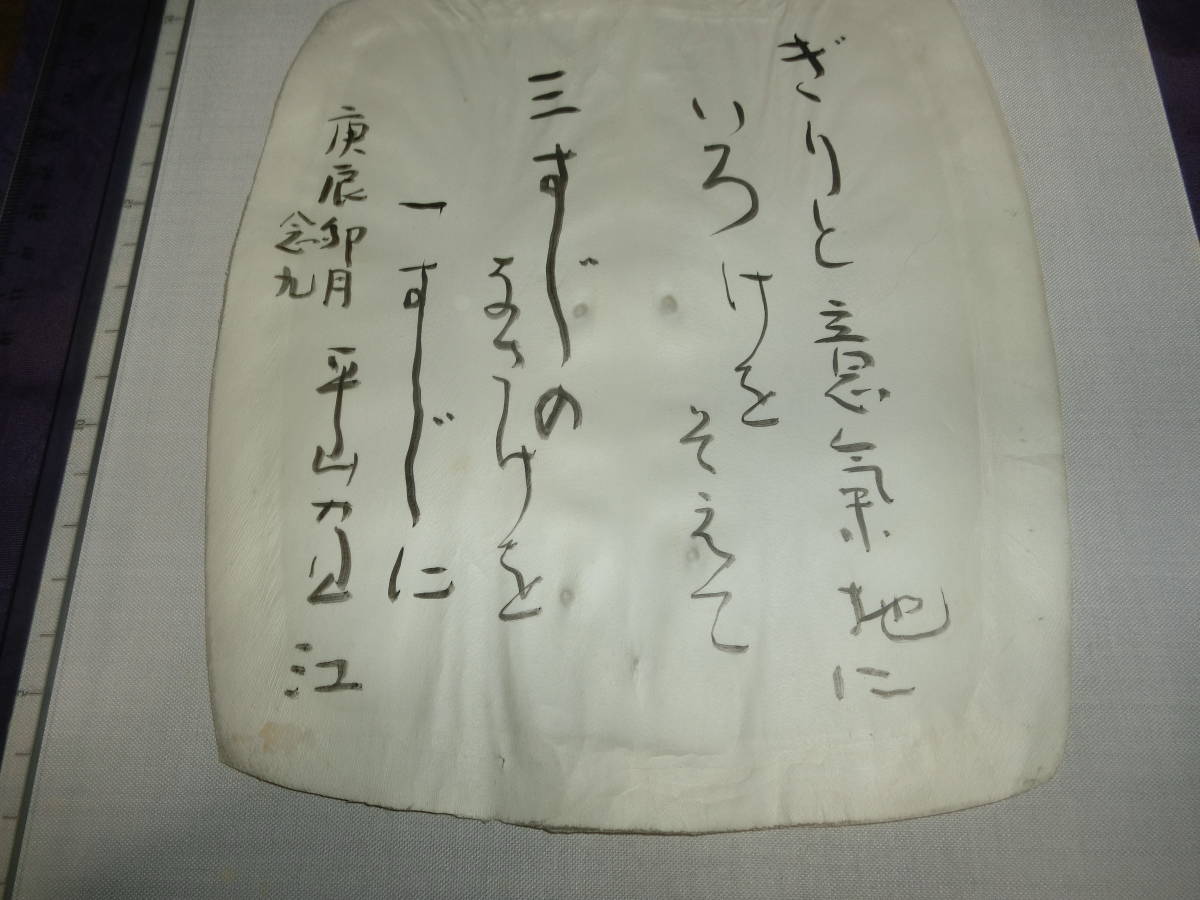 ぎりと意氣地に
いろけをそえて
三すじの
なさけを
一すじに
庚辰卯月
念九
平山力江